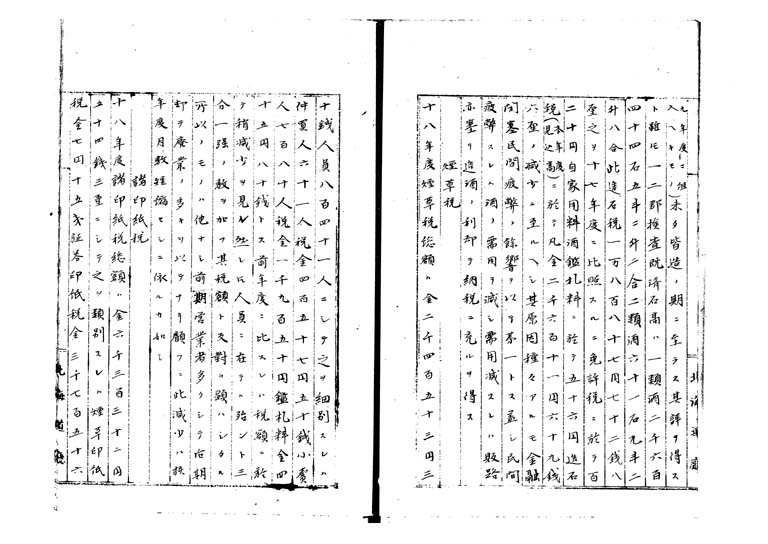 入ヘキモノ)未タ皆造ノ期ニ至ラス其詳ヲ得ス
ト雖モ一二郡検査既済石高ハ一類酒二千六百
四十四石五斗二升二合二類酒六十一石九斗二
升八合此造石税一万八百八十七円七十二銭八
至之ヲ十七年度ニ比照スルニ免許税ニ於テ百
二十円自家用料酒鑑札料ニ於テ五十六円造石
税(本年度見込高)ニ於テ凡金二千六百十一円六十九銭
六厘ノ減少ニ至ルヘシ其原因種々アルモ金融
閉塞民間疲弊ノ餘響ヲ以テ第一トス蓋シ民間
疲弊スレハ酒ノ需用ヲ減シ需用減スレハ販路
亦塞リ造酒ノ利却テ納税ニ充ルヲ得ス
煙草税
十八年度煙草税総額ハ金二千四百五十三円三
十銭人員八百四十一人ニシテ之ヲ細別スレハ
仲買人六十一人税金四百五十七円五十銭小賣
人七百八十人税金一千九百五十円鑑札料金四
十五円八十銭トス前年度ニ比スレハ税額ニ於
テ稍減少ヲ見ル然レ𪜈人員ニ在テハ殆ント三
合一強ノ数ヲ加フ其税額ト反對ノ顕ハシタル
所以ノモノハ他ナシ前期営業者多クシテ后期
却テ廃業ノ多キヲ以テナリ顧フニ此減少ハ
諸印紙税
十八年度諸印紙税総額ハ金六千三百三十二円
五十四銭三厘ニシテ之ヲ類別スレハ煙草印紙
税金七円十五銭証券印紙税金三千七百五十六
北海道廳